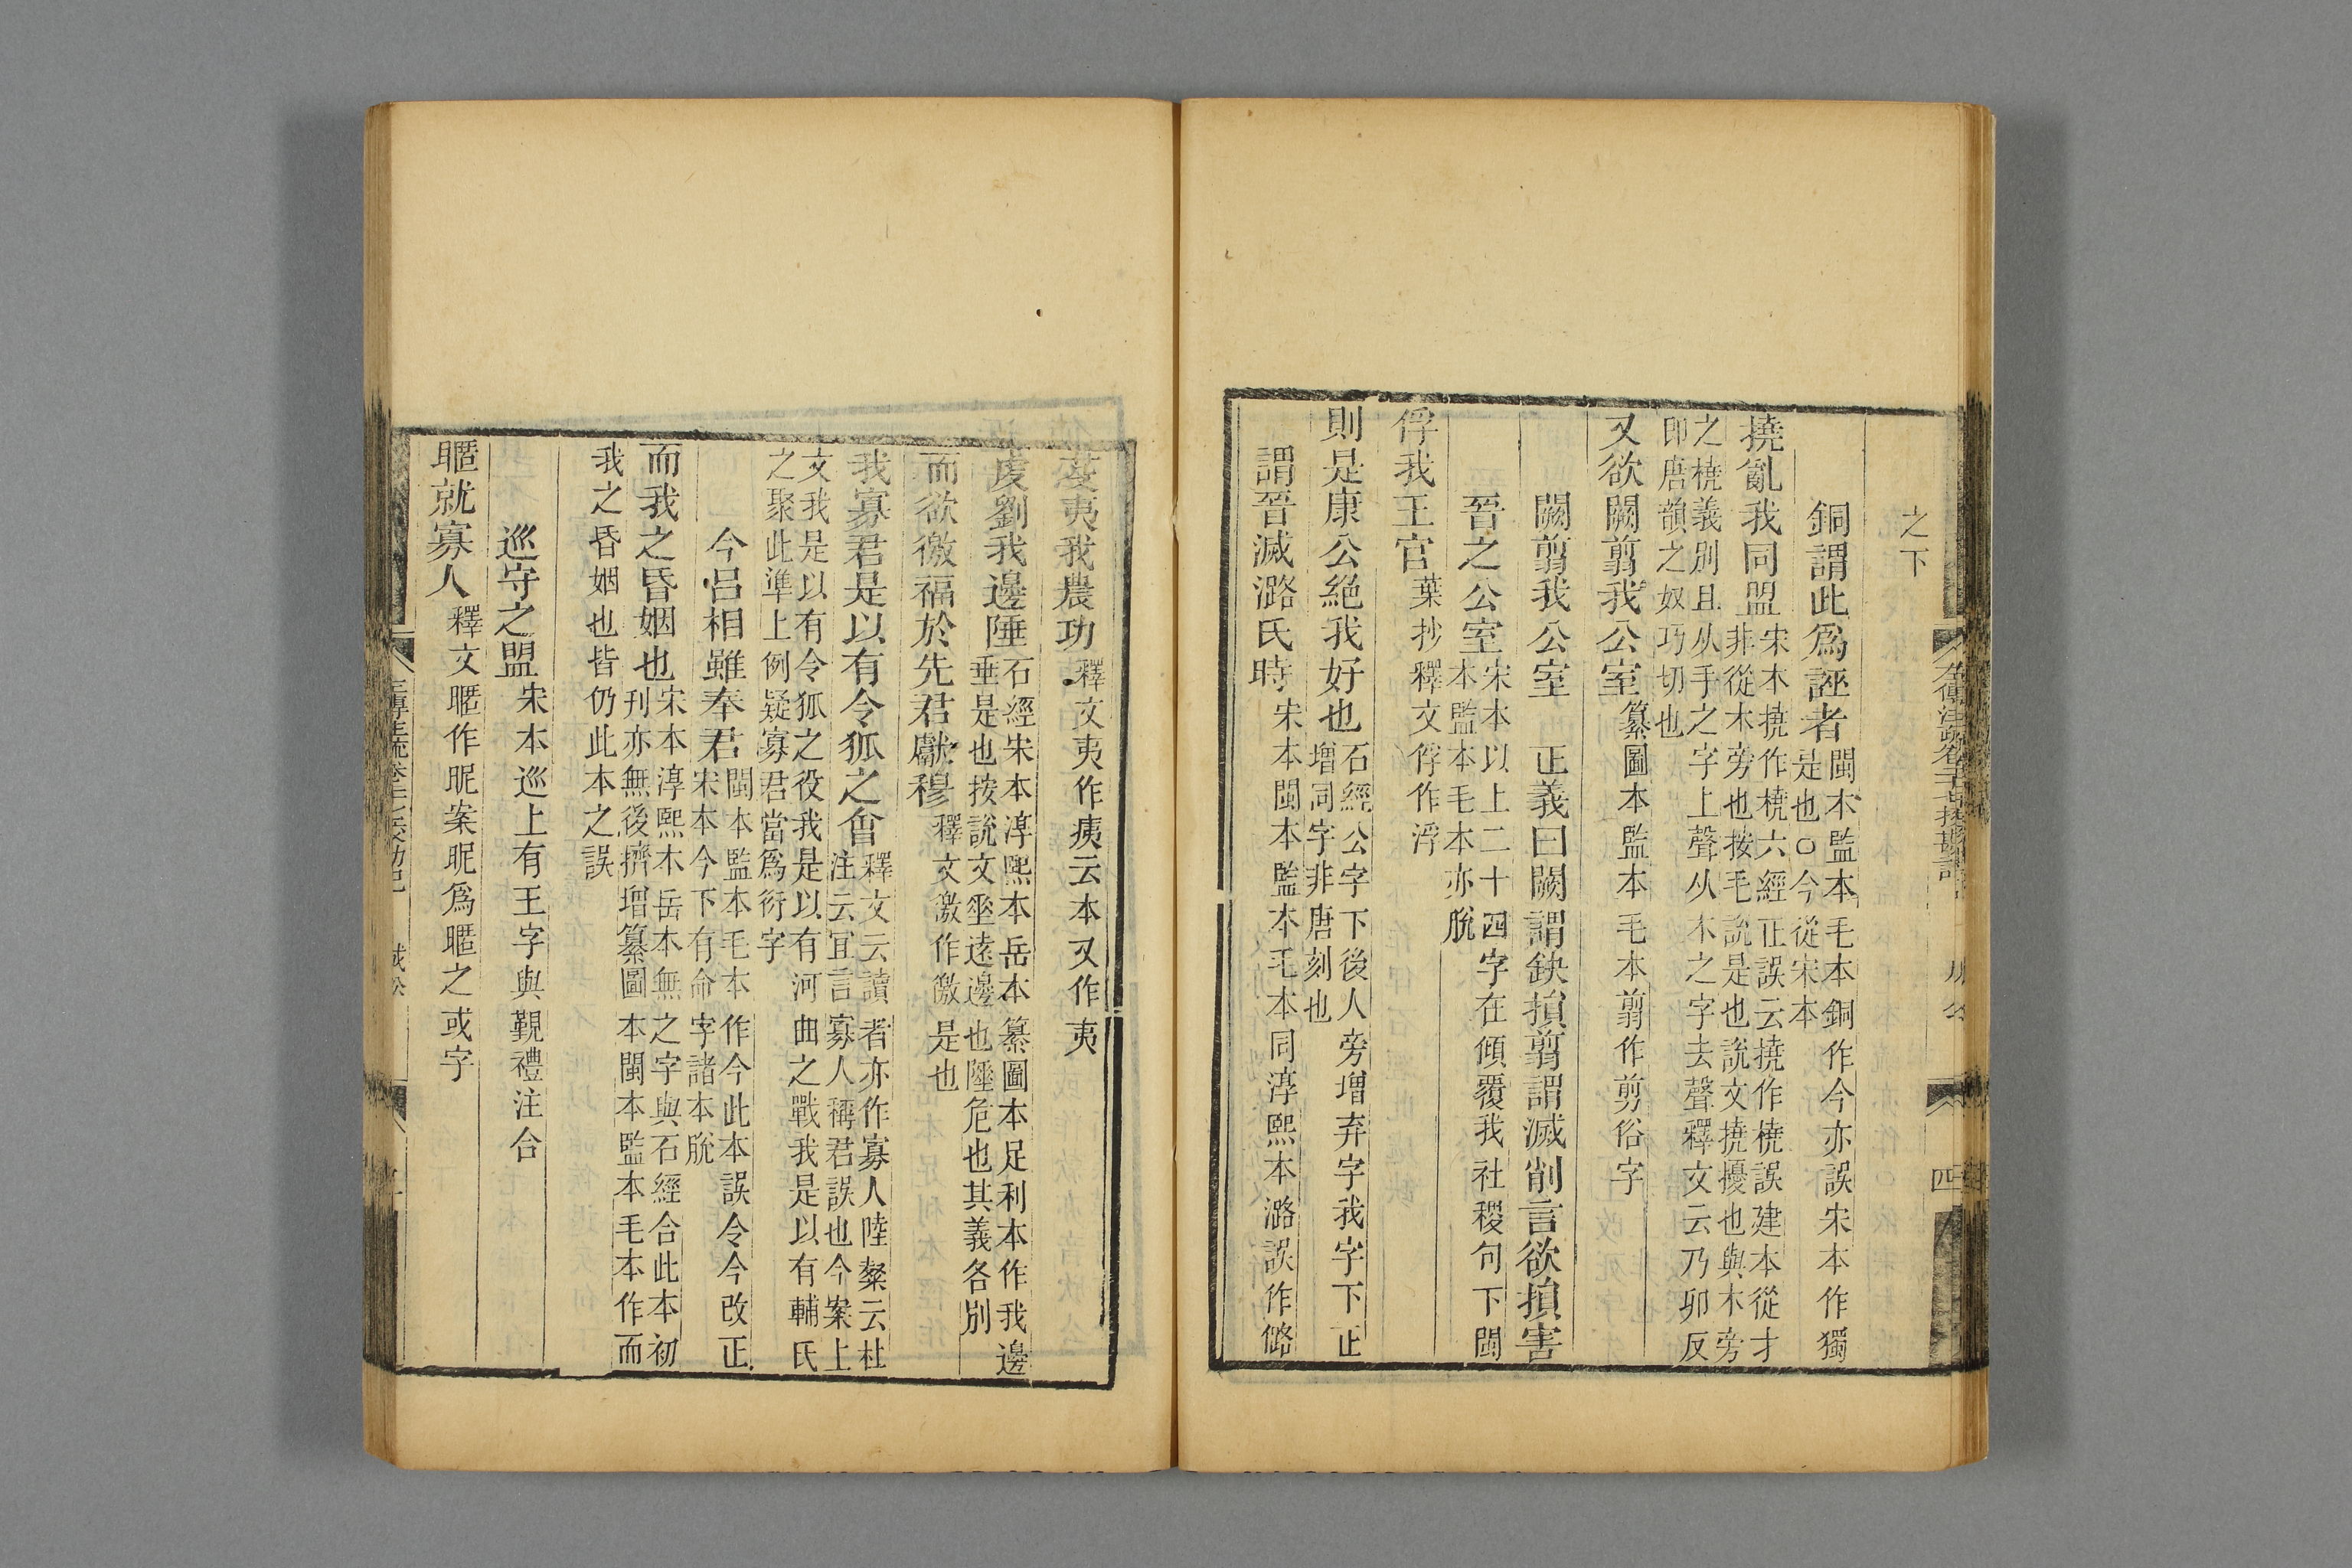 之下
銅謂此爲誣者閩本監本毛本銅作今亦誤宋本作獨
是也○今從宋本
撓亂我同盟宋本撓作橈六經正誤云撓作橈誤建本從才
非從木旁也按毛說是也說文撓擾也與木旁
之橈義別且从手之字上聲从木之字去聲釋文云乃卯反
即唐韻之奴巧切也
又欲闕翦我公室纂圖本監本毛本翦作剪俗字
闕翦我公室 正義曰闕謂缺損翦謂滅削言欲損害
晉之公室宋本以上二十四字在傾覆我社稷句下閩
本監本毛本亦脫
俘我王官葉抄釋文俘作浮
則是康公絕我好也石經公字下後人旁增弃字我字下正
增同字非唐刻也
謂晉滅潞氏時宋本閩本監本毛本同淳熙本潞誤作簬
左傳注疏卷二十七校勘記
四
芟夷我農功釋文夷作痍云本又作夷
虔劉我邊陲石經宋本淳熙本岳本纂圖本足利本作我邊
垂是也按說文垂遠邊也陲危也其義各別
而欲徼福於先君獻穆釋文激作徼是也
我寡君是以有令狐之會釋文云讀者亦作寡人陸粲云杜
注云宜言寡人稱君誤也今案上
文我是以有令狐之役我是以有河曲之戰我是以有輔氏
之聚此準上例疑寡君當爲衍字
今呂相雖奉君閩本監本毛本作今此本誤令今改正
宋本今下有命字諸本脫
而我之昏姻也宋本淳熙本岳本無之字與石經合此本初
刊亦無後擠增纂圖本閩本監本毛本作而
我之昏姻也皆仍此本之誤
巡守之盟宋本巡上有王字與覲禮注合
暱就寡人釋文暱作昵案昵爲暱之或字